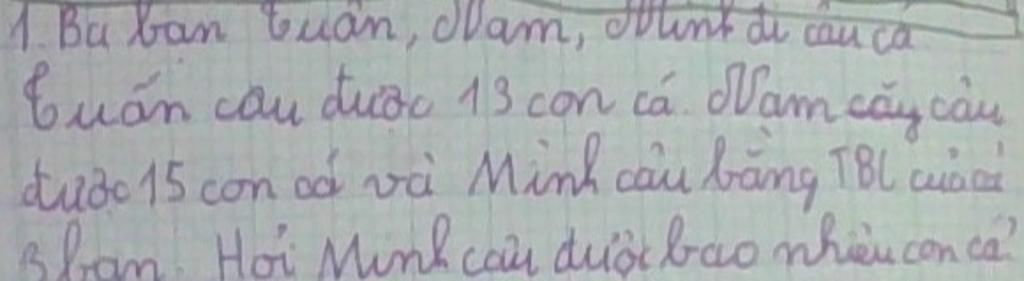 1. Ba bạn Tuấn, Nam, Minh đi câu cá
Tuấn câu được 13 con cá. Nam cây câu
được 15 con cá và Minh câu bằng TBC của cả
3 bạn. Hỏi Minh câu được bao nhiêu con cá?